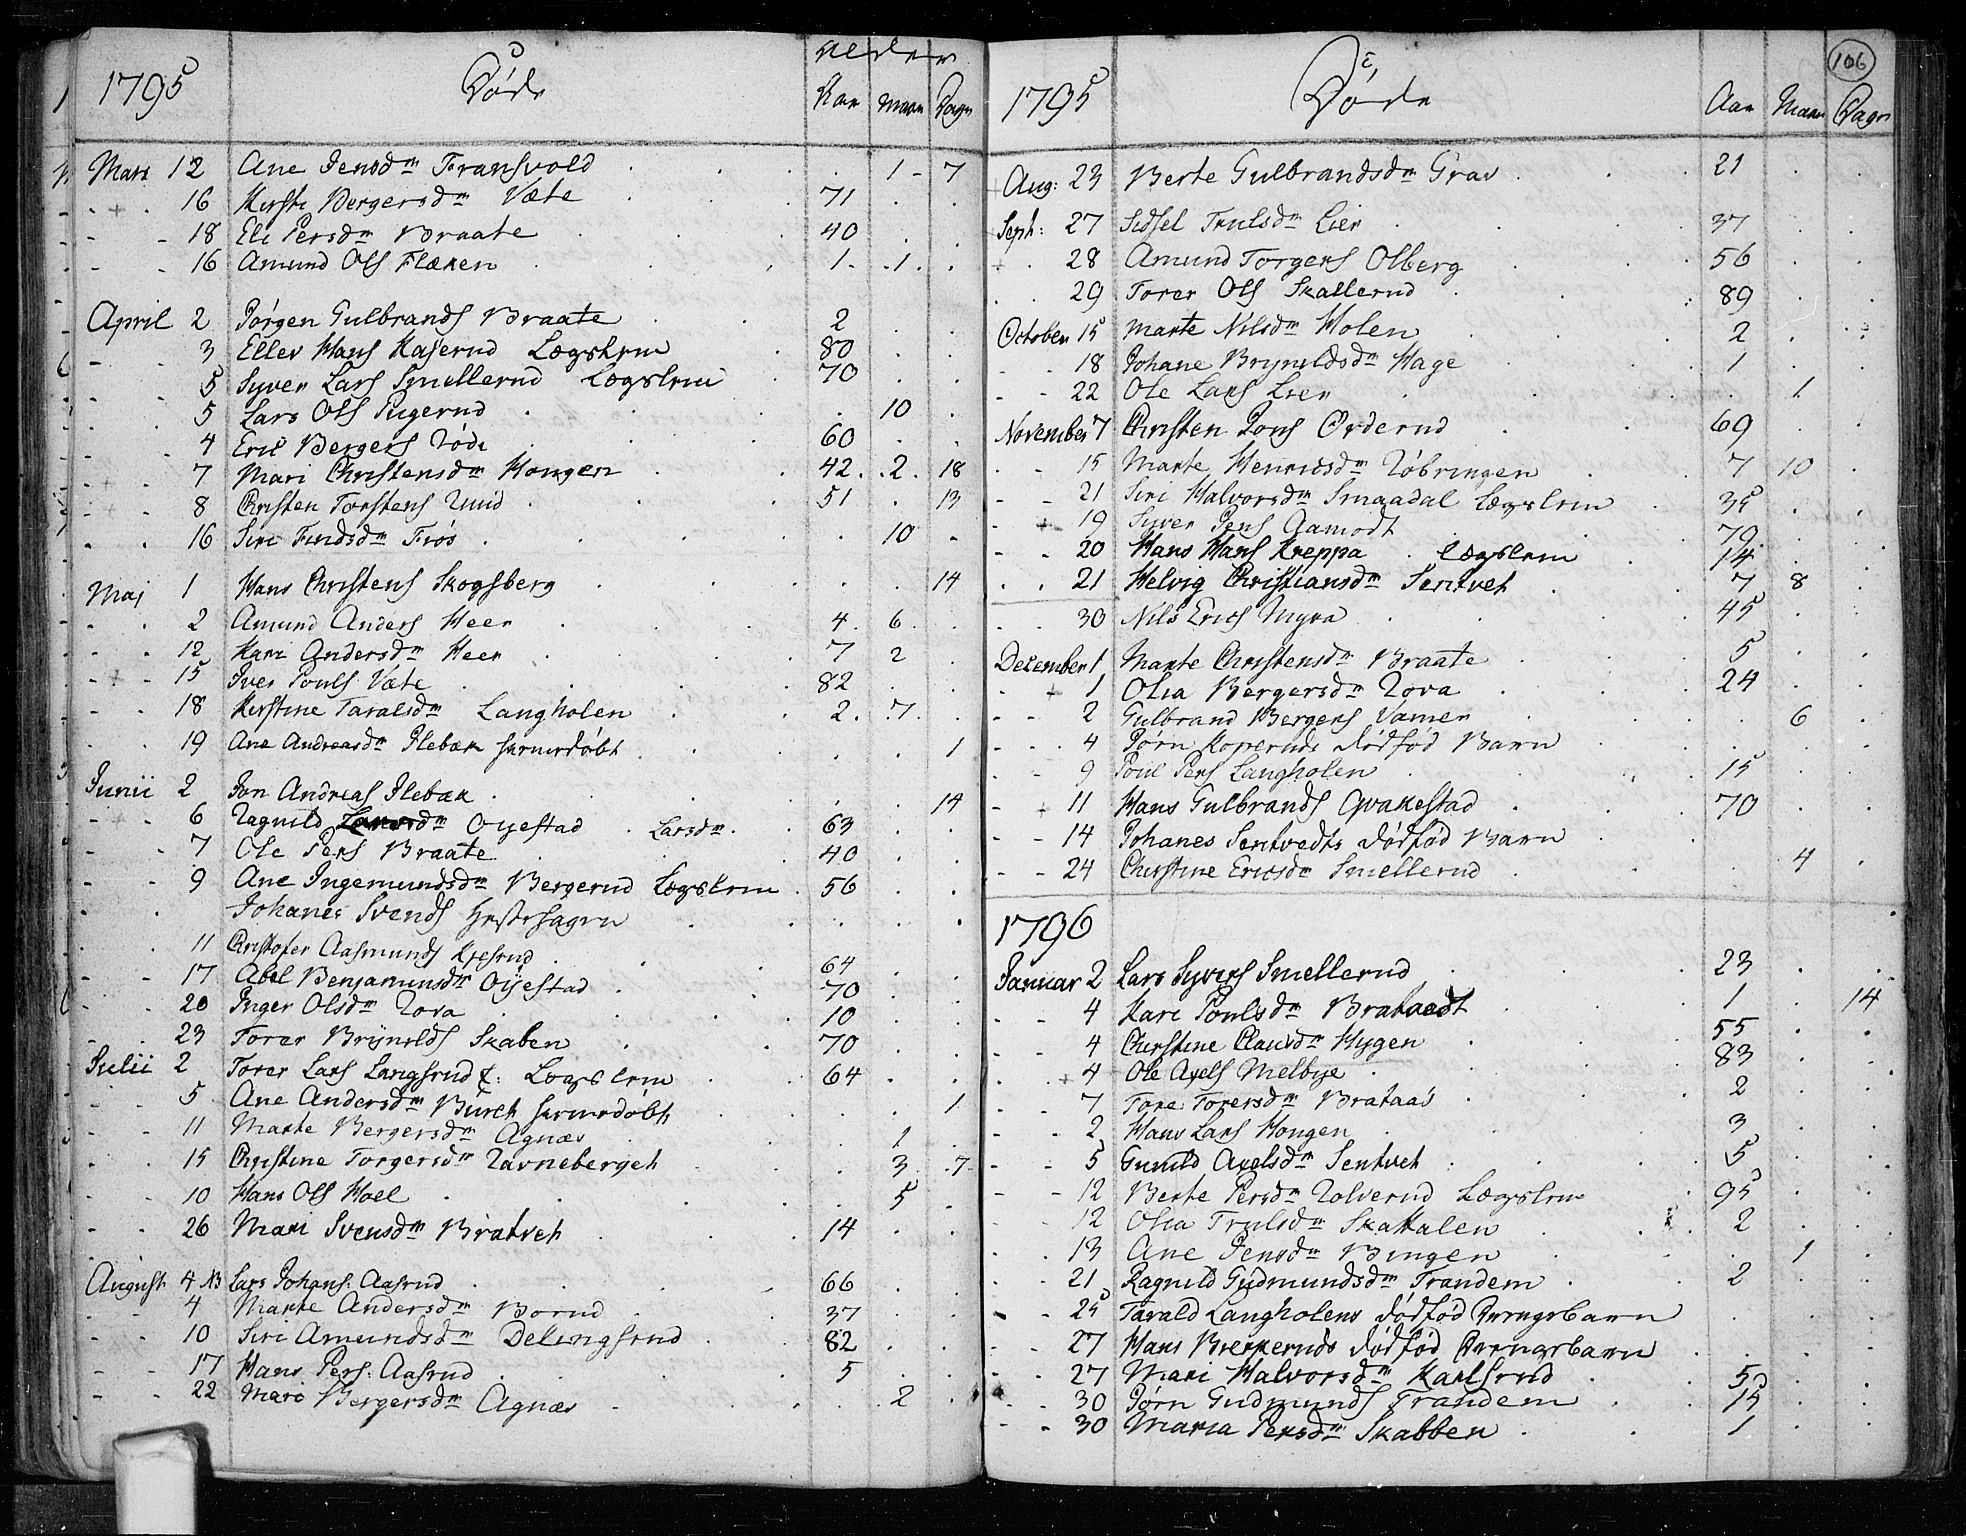 1795 Døde Alder
Aar Maan Dagr
Mars 12 Ane Jensdm Fransvold 1 7
16 Kirsti Bergersdm Væte 71
18 Eli Persdm Braate 40
16 Amund Ols Flæken 1 1
April 2 Jørgen Gulbrands Braate 2
3 Ellev Hans Kaserud Lægslem 80
5 Syver Lars Smellerud Lægslem 70
5 Lars Ols Rugerud 10
4 Eric Bergers Røde 60
7 Mari Christensdm Hougen 42 2 18
8 Christen Torstens Ruud 51 13
16 Siri Findsdm Fiøs 10
Maj 1 Hans Christens Skogsberg 14
2 Amund Anders Heer 4 6
12 Kari Andersdm Heer 7 2
15 Iver Pouls Væte 82
18 Kirstine Taralsdm Langholen 2 7
19 Ane Andreasdm Ilebæk hiemedøbt 1
Junii 2 Jon Andreas Ilebæk 14
6 Ragnild Oyestad Larsdm 63
7 Ole Pers Braate 40
9 Ane Ingemundsdm Bergerud Lægslem 56
Johanes Svends Hestehagen
11 Christofer Aasmunds Kjesrud 64
17 Abel Benjaminsdm Oyestad 70
20 Inger Olsdm Rova 10
23 Torer Brynilds Skaben 70
Julii 2 Torer Lars Langsrud E: Lægslem 64
5 Ane Andersdm Burch hiemedøbt 1
11 Marte Bergersdm Agnæs 1
15 Christine Torgersdm Ravneberget 3 7
10 Hans Ols Hoel 5
26 Mari Svensdm Bratvet 14
August 4 NB Lars Johans: Aasrud 66
4 Marte Andersdm Borud 37
10 Siri Amundsdm Delingsrud 82
17 Hans Pers: Aasrud 5
22 Mari Bergersdm Agnæs 2
106
1795 Døde Aar Maan Dagr
Aug: 23 Berte Gulbrandsdm Grav 21
Sept: 27 Sidsel Trulsdm Lier 37
28 Amund Torgers Olberg 56
29 Torer Ols Skallerud 89
October 15 Marte Nilsdm Holen 2
18 Johane Brynildsdm Hage 1
22 Ole Lars Lier 1
November 7 Christen Jons Ørderud 69
15 Marte Henricsdm Røbringen 7 10
21 Siri Halvorsdm Smaadal Lægslem 35
19 Syver Pers Aamodt 79
20 Hans Hans Kreppa Lægslem 14
21 Helvig Christiansdm Sentvet 7 8
30 Nils Erics Myra 45
December 1 Marte Christensdm Braate 5
1 Olia Bergersdm Rova 24
2 Gulbrand Bergers Vamer 6
4 Jørn Koperuds dødfød Barn
9 Poul Pers Langholen 15
11 Hans Gulbrands Qvakestad 70
14 Johanes Sentvedts dødfød Barn
24 Christine Ericsdm Smellerud 4
1796
Januar 2 Lars Syvers Smellerud 23
4 Kari Poulsdm Brataedt 1 14
4 Christine Clausdm Hygen 55
4 Ole Axels Melbye 83
7 Tore Torersdm Brataas 2
2 Hans Lars Hougen 3
5 Gunild Axelsdm Sentvet 5
12 Berte Persdm Rolverud Lægslem 95
12 Olia Trulsdm Skattalen 2
13 Ane Jensdm Bingen 1
21 Ragnild Gudmundsdm Trandem 2
25 Tarald Langholens dødfød Drengebarn
27 Hans Brekeruds dødfød Drengebarn
27 Mari Halvorsdm Karlsrud 5
30 Jørn Gudmunds Trandem 15
30 Maria Persdm Skabben 1